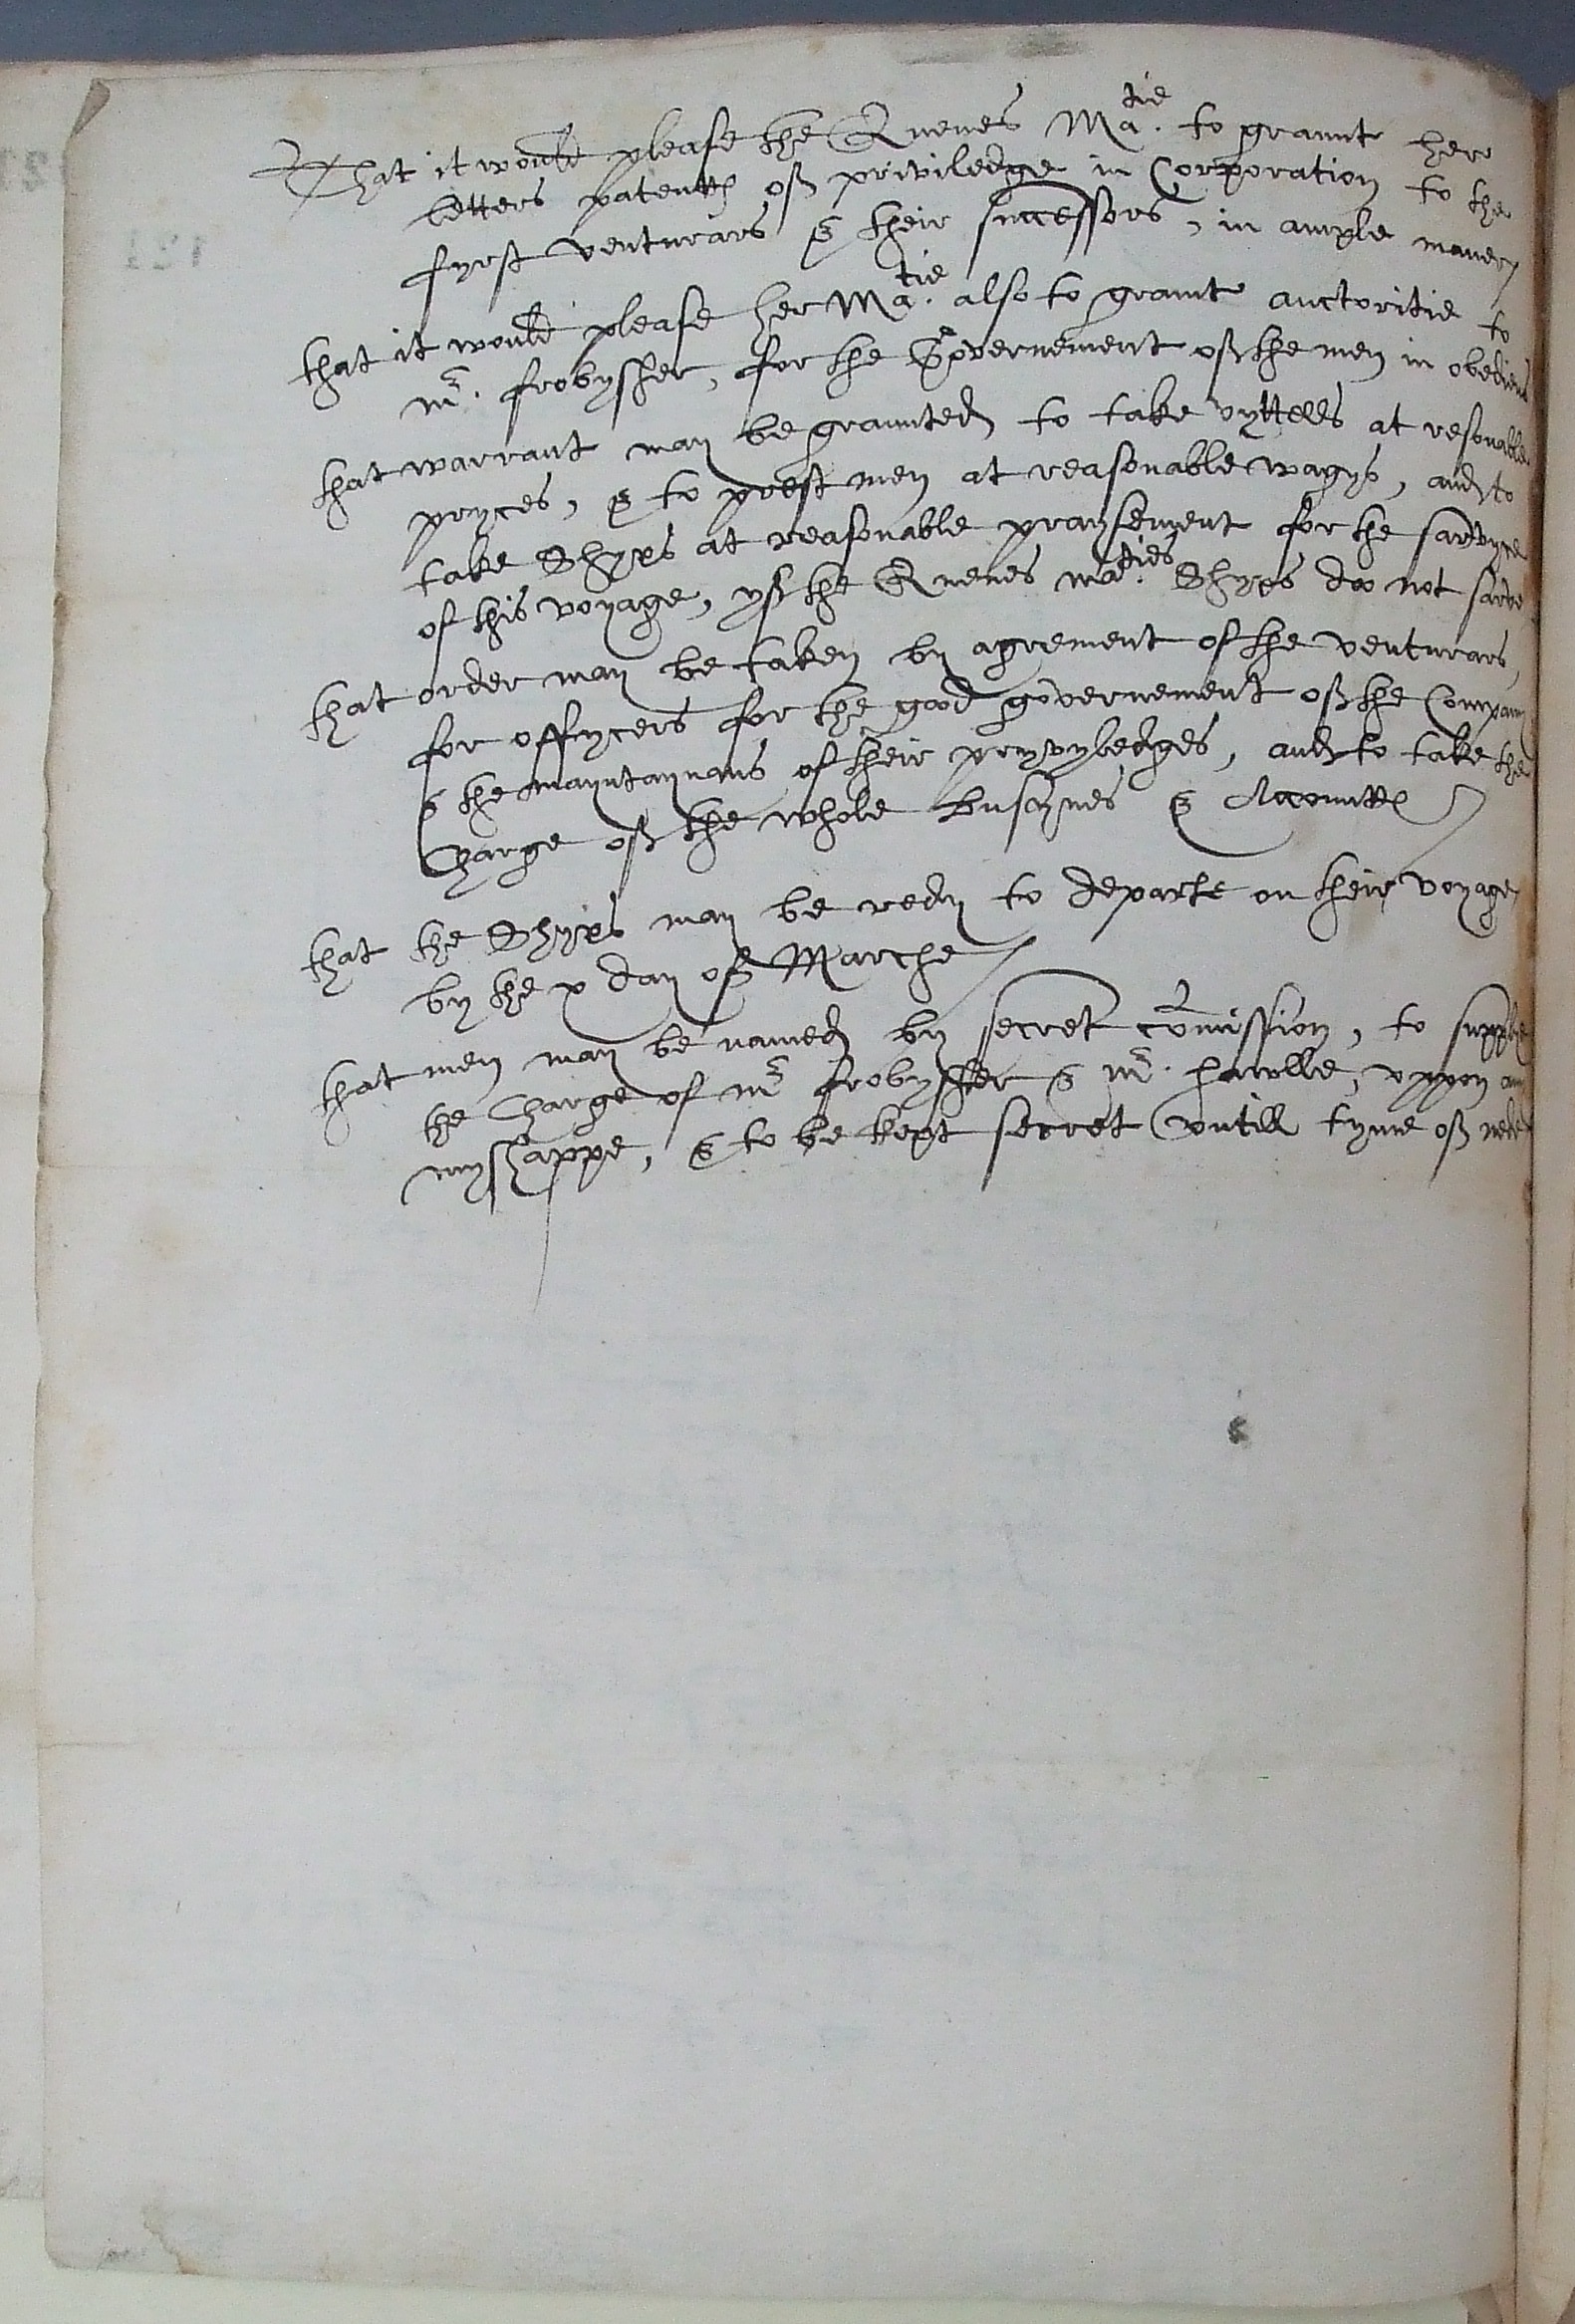 That it would please the Quenes Ma.tie to graunt her
letters patentes off priviledge in Corporation to the
fyrst venturars & their successors, in ample maner
that it would please her Ma.tie also to graunt auctoritie to
mr. frobysher, for the Governement off the men in obediens
that warrant may be graunted to take vyttells at resonable
pryces, & to prest men at reasonable wagys, and to
take Shyps at reasonable praysement for the sarvyce
of this voyage, yff the Quenes ma.ties Shyps doo not sarve
that order may be taken by agrement of the venturars,
for offycers for the good governement off the Company
& the mayntaynans of their pryvyledges, and to take the
Charge off the whole busynes & Accounttes
that the Shyps may be redy to departe on their voyage
by the x day off Marche
that men may be named by secret comission, to supplye
the Charge of mr frobysher & mr. hawlle, uppon any
myshappe, & to be kept secret untill tyme off nede
121